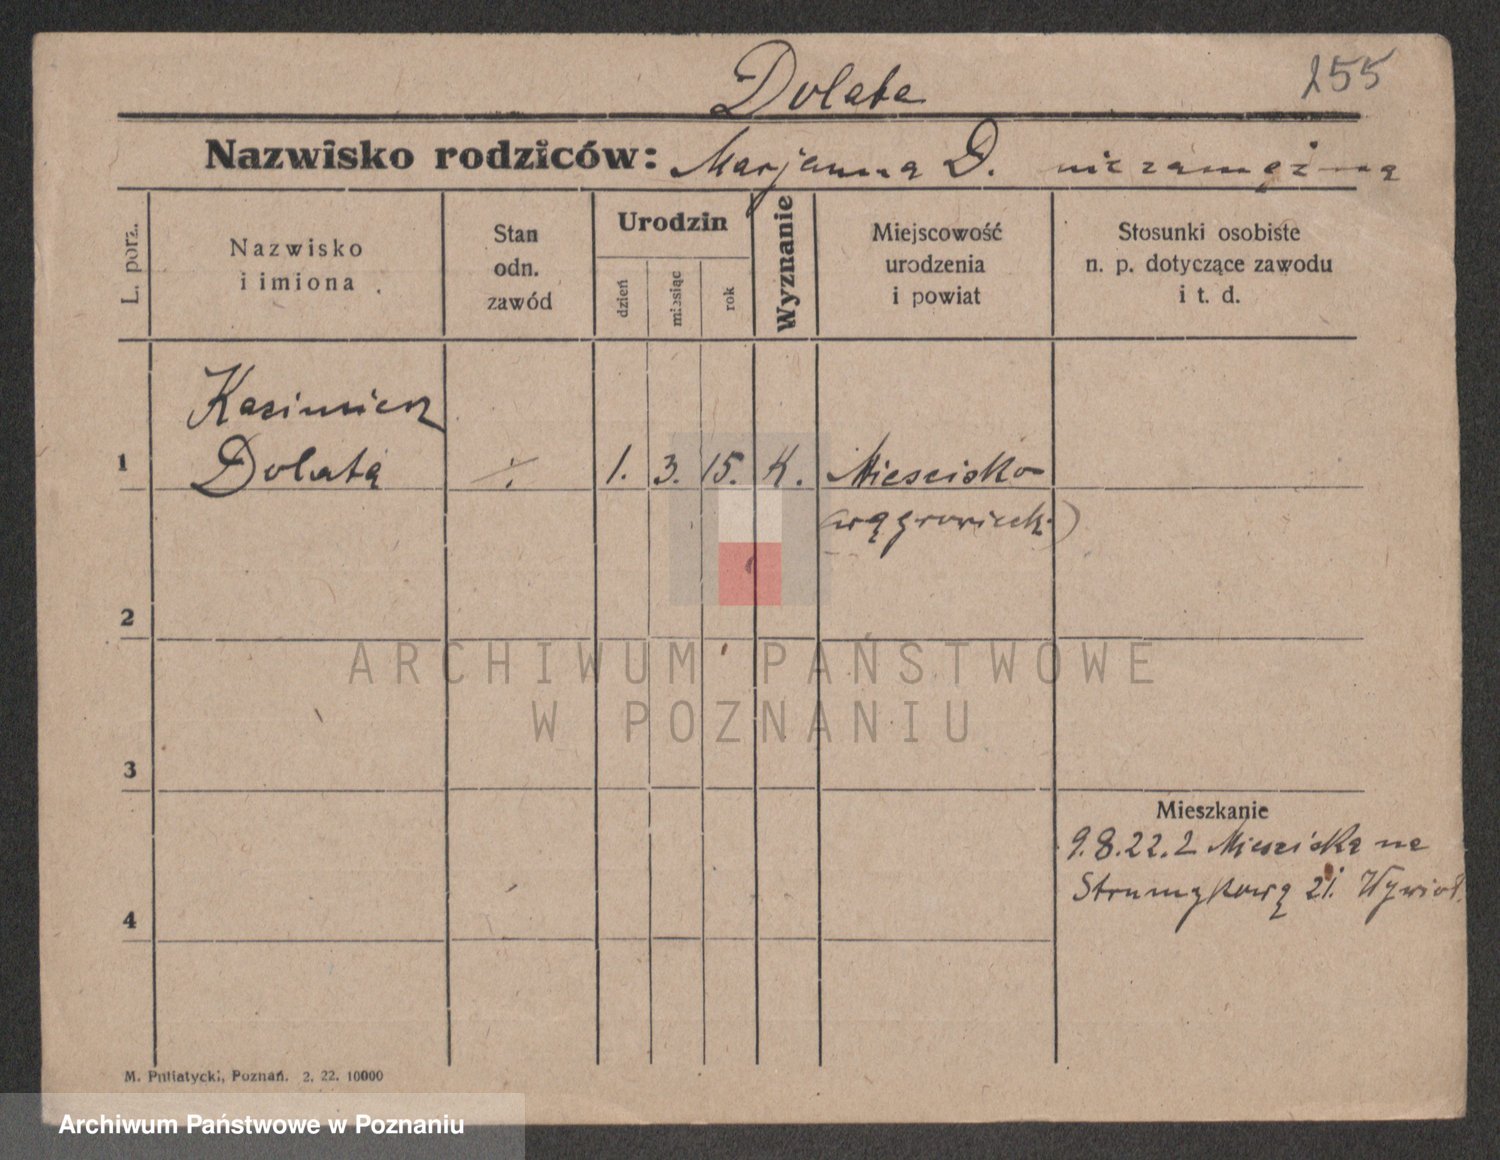 Dolata
255
Nazwisko rodziców: Marjanna D. niezamężna
L. porz.
Nazwisko
i imiona
Stan
odn.
zawód
Urodzin
dzień
miesiąc
rok
Wyznanie
Miejscowość
urodzenia
i powiat
Stosunki osobiste
n. p. dotyczące zawodu
i t. d.
Kazimierz
1 Dolata ·/. 1. 3. 15. K. Mieścisko
(wągrowieck.)
2
ARCHIWUM PAŃSTWOWE
W POZNANIU
3
Mieszkanie
9.8.22. z Mieściska na
Strumykową 21.
4
M. Putiatycki, Poznań. 2. 22. 10000
Archiwum Państwowe w Poznaniu